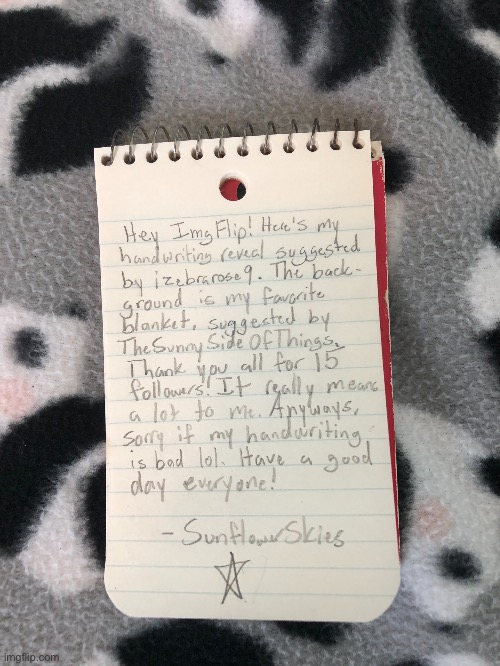 Hey ImgFlip! Here's my
handwriting reveal suggested
by izebrarose9. The back-
ground is my favorite
blanket, suggested by
TheSunnySideOfThings.
Thank you all for 15
followers! It really means
a lot to me. Anyways,
sorry if my handwriting
is bad lol. Have a good
day everyone!
- SunflowerSkies
imgflip.com